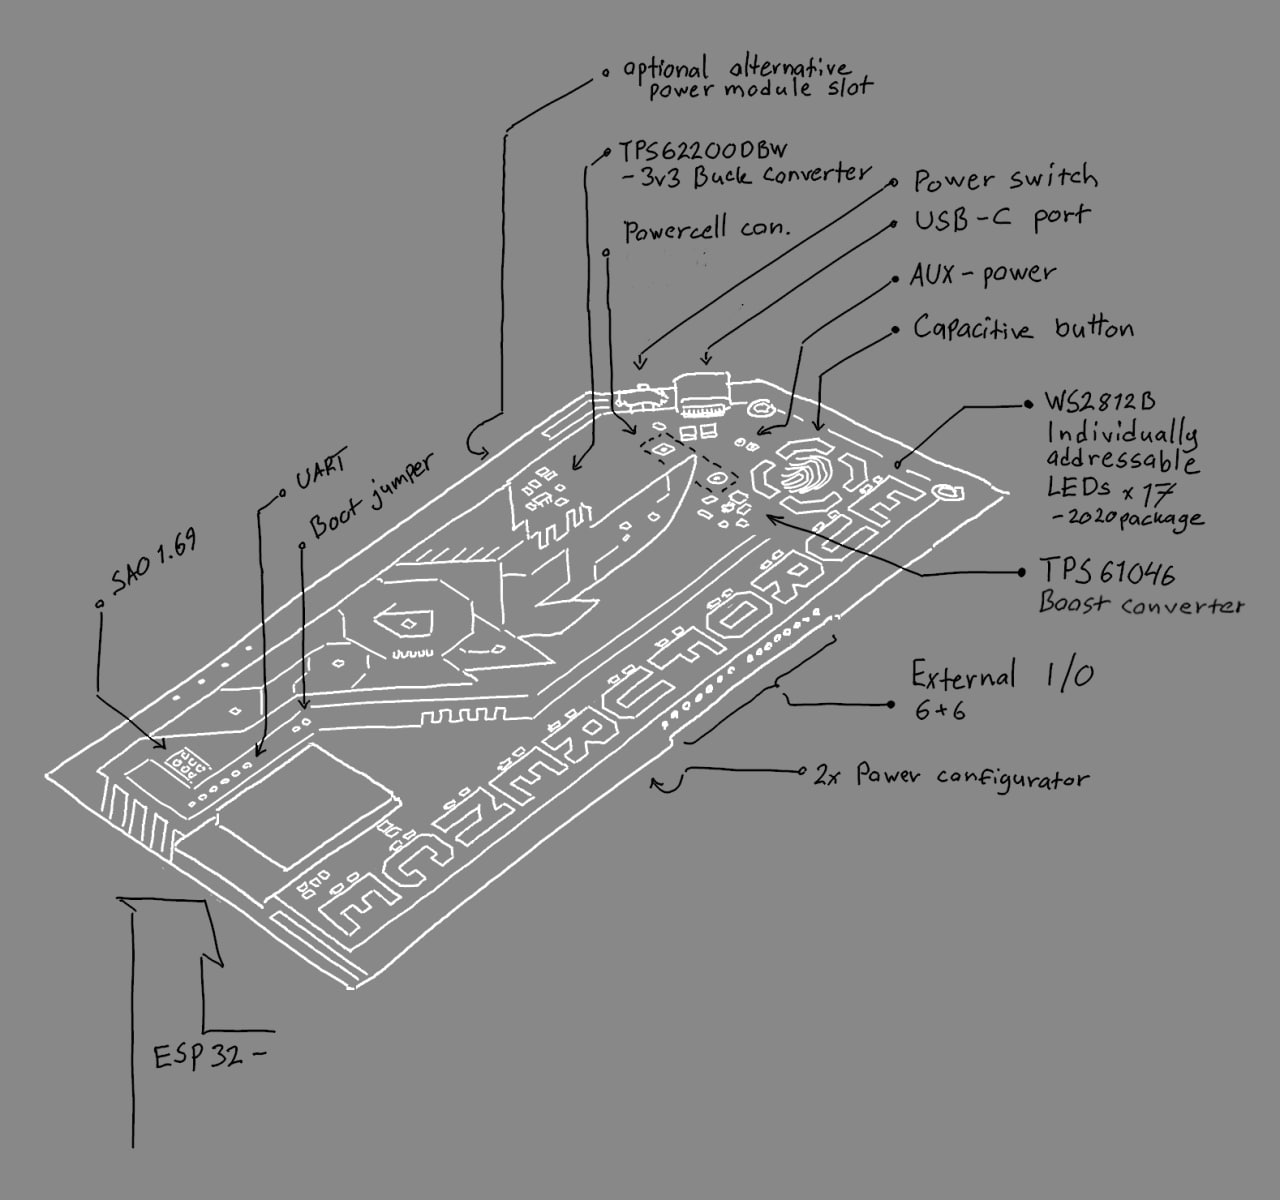 optional alternative
power module slot
TPS62200DBW
- 3v3 Buck converter
Powercell con.
Power switch
USB-C port
AUX-power
Capacitive button
WS2812B
Individually
addressable
LEDs x 17
- 2020 package
TPS61046
Boost converter
External I/O
6+6
2x Power configurator
UART
Boot jumper
SAO 1.69
ESP32-